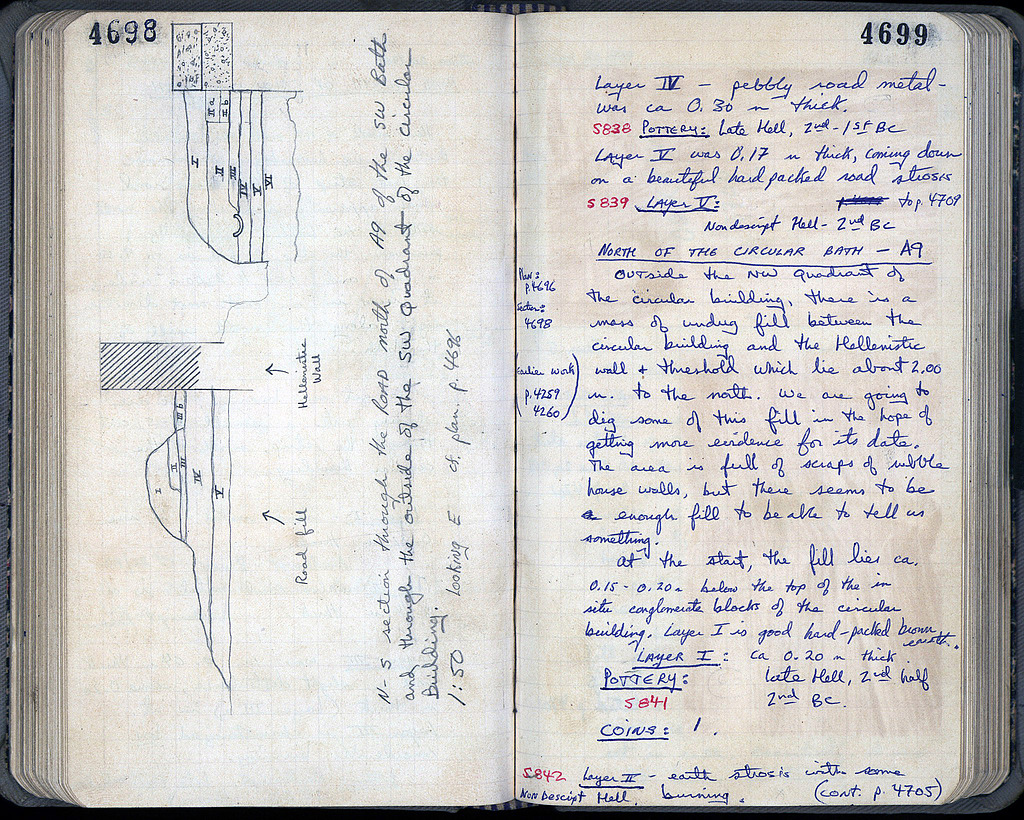 4698
I
II
IIa
IIb
III
IV
V
VI
Hellenistic
Wall
I
II
III
IIIb
IV
V
Road fill
N-S section through the ROAD north of A9 of the SW Bath
and through the outside of the SW Quadrant of the circular
building.
1:50 looking E cf. plan. p. 4696
4699
Layer IV – pebbly road metal –
was ca 0.30 m thick.
S838 POTTERY: Late Hell, 2nd-1st BC
Layer V was 0.17 m thick, coming down
on a beautiful hard packed road strosis
S839 LAYER V: to p. 4709
Nondescript Hell - 2nd BC
NORTH OF THE CIRCULAR BATH – A9
Outside the NW Quadrant of
the circular building, there is a
mass of undug fill between the
circular building and the Hellenistic
wall + threshold which lie about 2.00
m. to the north. We are going to
dig some of this fill in the hope of
getting more evidence for its date.
The area is full of scraps of rubble
house walls, but there seems to be
enough fill to be able to tell us
something.
Plan:
p. 4696
Section:
4698
Earlier work
p. 4259
4260
At the start, the fill lies ca.
0.15 - 0.20 m below the top of the in
situ conglomerate blocks of the circular
building. Layer I is good hard-packed brown
earth.
LAYER I: ca 0.20 m thick.
POTTERY: late Hell, 2nd half
S841 2nd BC.
COINS: 1.
S842 Layer II – earth strosis with some
Non Descript Hell. burning. (cont. p. 4705)